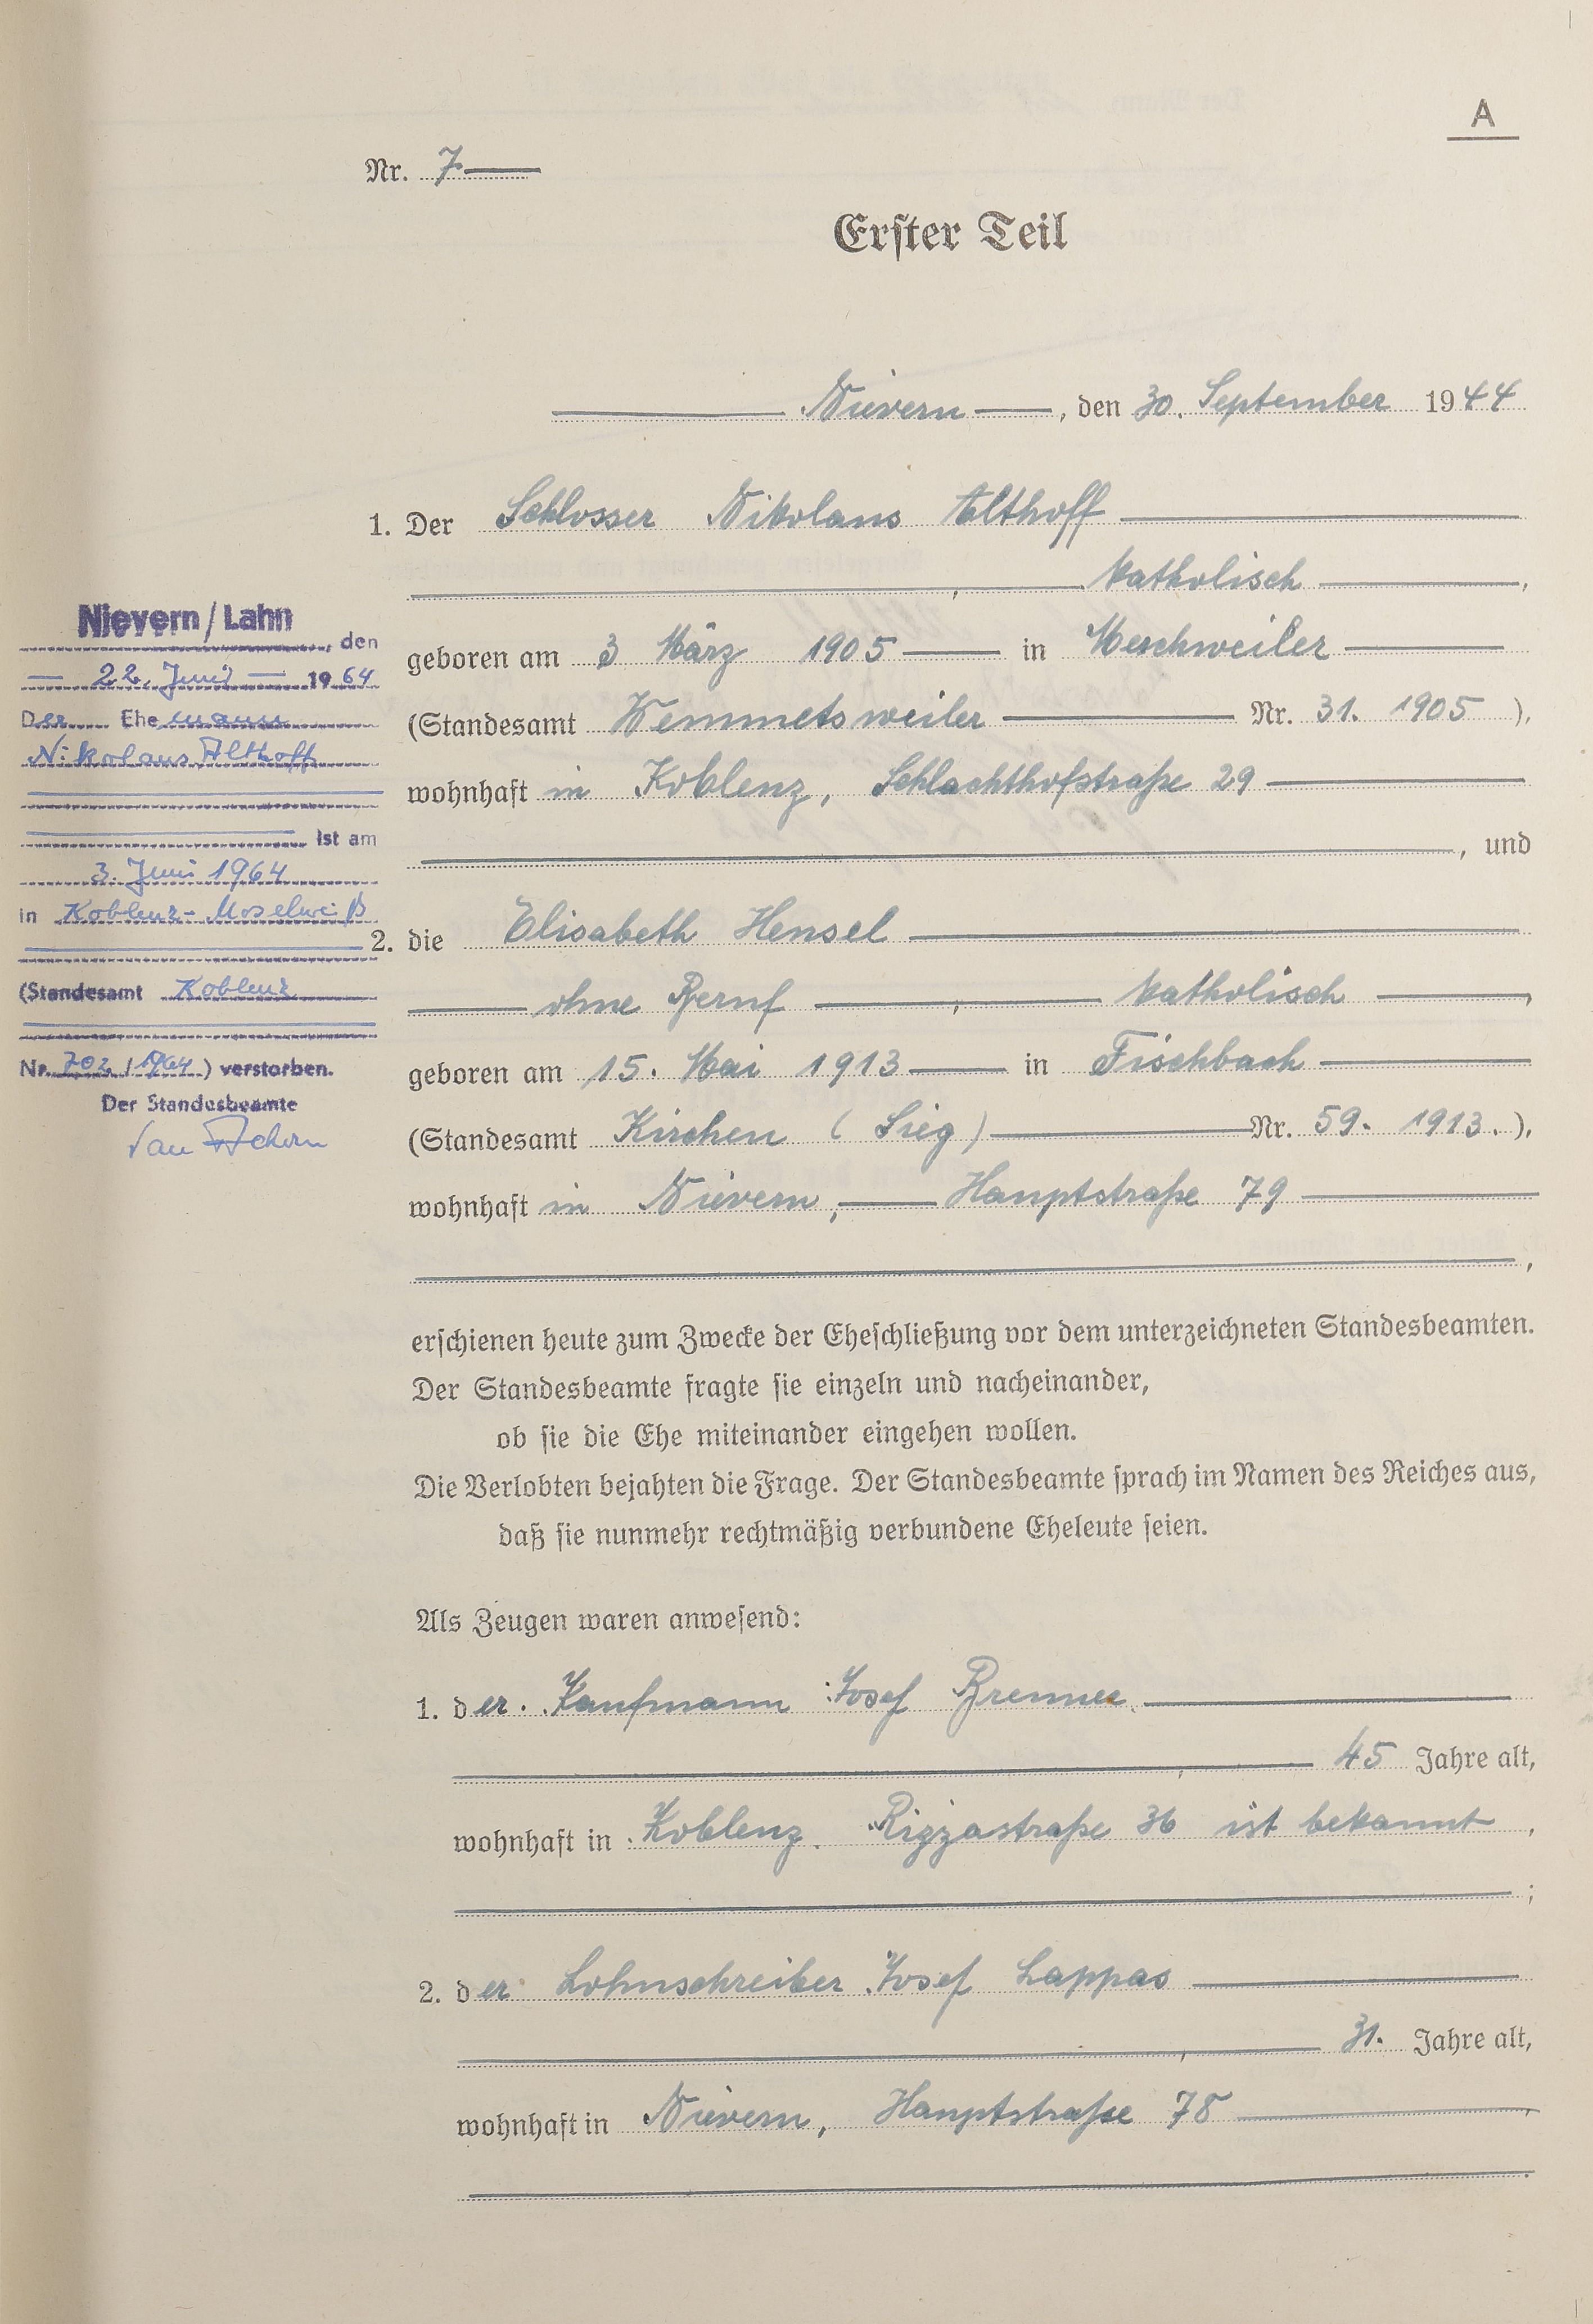 A
Nr. 7
Erster Teil
Nievern, den 30. September 1944
1. Der Schlosser Nikolaus Althoff
, katholisch,
geboren am 3 März 1905 in Merchweiler
(Standesamt Wemmetsweiler Nr. 31. 1905),
wohnhaft in Koblenz, Schlachthofstraße 29
, und
2. die Elisabeth Hensel
ohne Beruf, katholisch,
geboren am 15. Mai 1913 in Fischbach
(Standesamt Kirchen (Sieg) Nr. 59. 1913.),
wohnhaft in Nievern, Hauptstraße 79
,
erschienen heute zum Zwecke der Eheschließung vor dem unterzeichneten Standesbeamten.
Der Standesbeamte fragte sie einzeln und nacheinander,
ob sie die Ehe miteinander eingehen wollen.
Die Verlobten bejahten die Frage. Der Standesbeamte sprach im Namen des Reiches aus,
daß sie nunmehr rechtmäßig verbundene Eheleute seien.
Als Zeugen waren anwesend:
1. der Kaufmann Josef Brenner
, 45 Jahre alt,
wohnhaft in Koblenz. Rizzastraße 36 ist bekannt,
;
2. der Lohnschreiber Josef Lappas
, 31. Jahre alt,
wohnhaft in Nievern, Hauptstraße 78
.
Nievern/Lahn
, den
22. Juni 1964
Der Ehemann
Nikolaus Althoff
ist am
3. Juni 1964
in Koblenz-Moselweiß
(Standesamt Koblenz
Nr. 702/1964) verstorben.
Der Standesbeamte